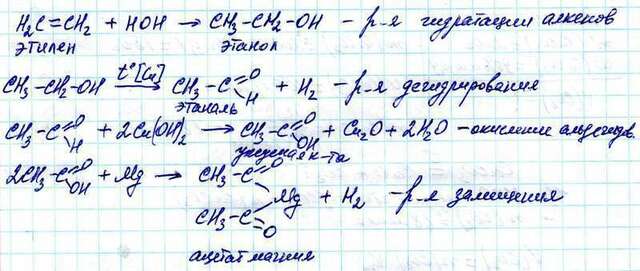 H₂C=CH₂ + HOH → CH₃-CH₂-OH - р-я гидратации алкенов
этилен этанол
CH₃-CH₂-OH t°[Cu] → CH₃-C=O H + H₂ - р-я дегидрирования
этаналь
CH₃-C=O H + 2Cu(OH)₂ → CH₃-C=O OH + Cu₂O + 2H₂O - окисление альдегидов.
уксусная к-та
2CH₃-C=O OH + Mg → CH₃-C=O Mg CH₃-C=O + H₂ - р-я замещения
ацетат магния